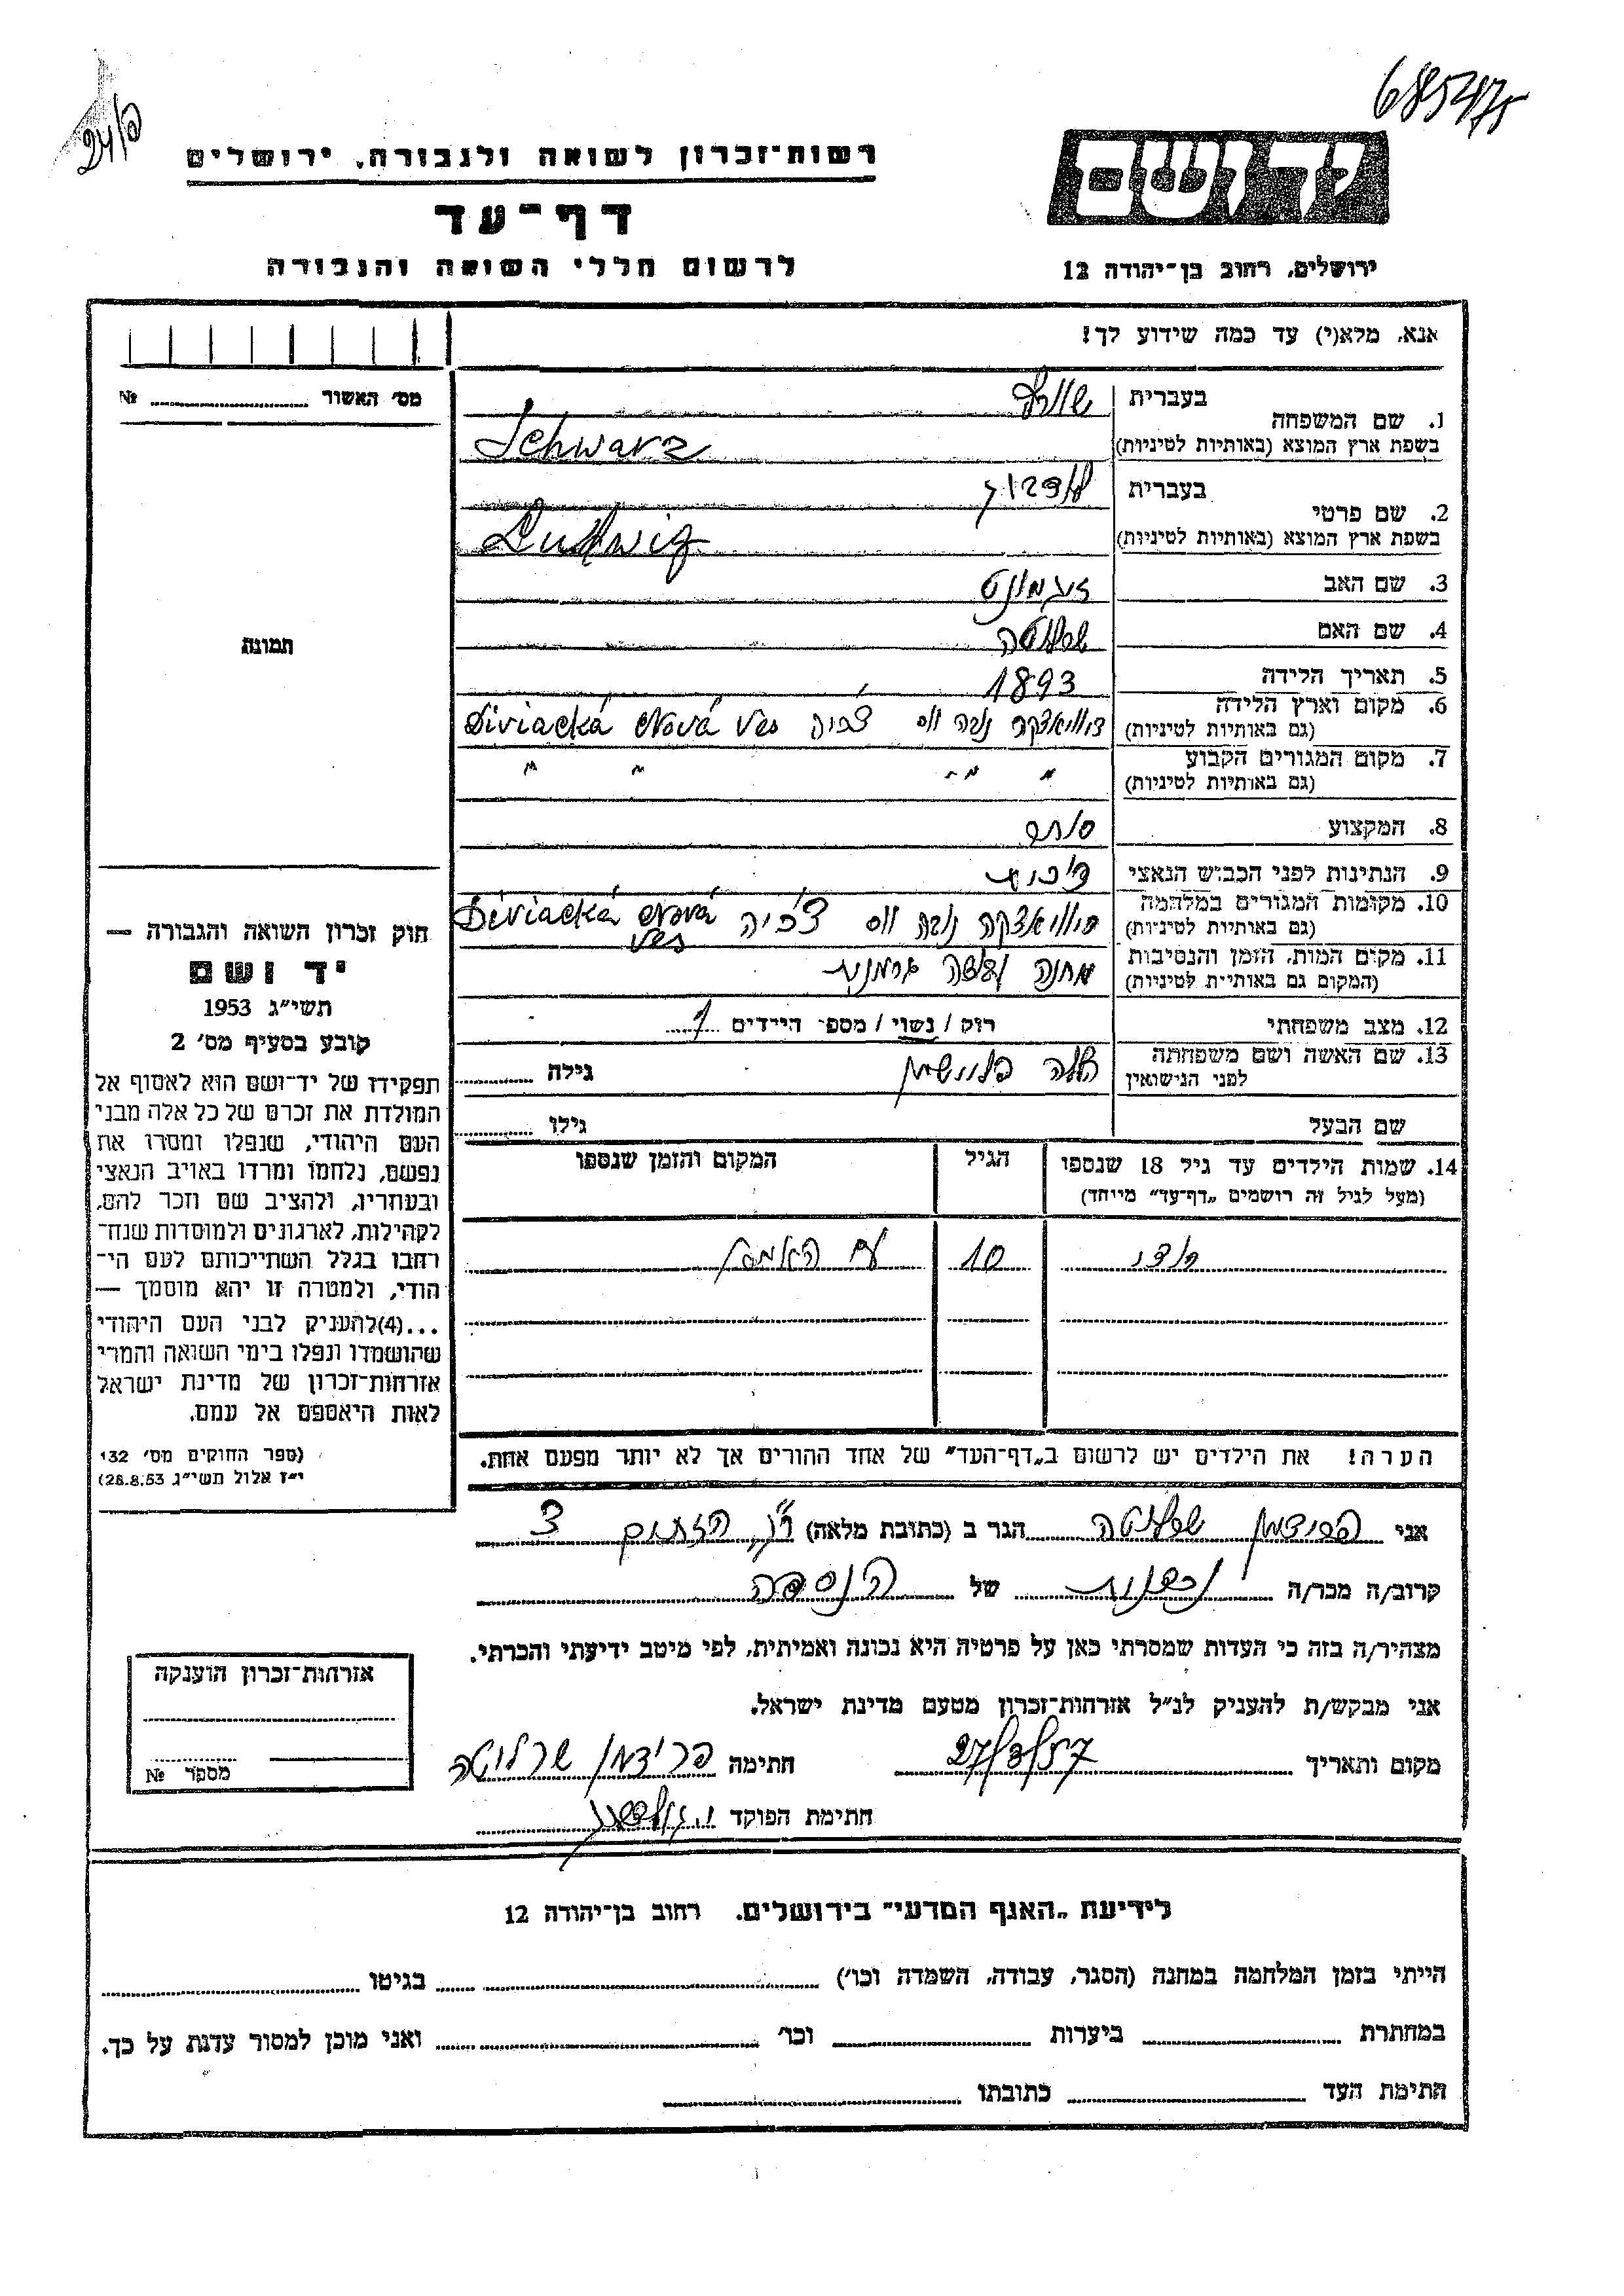 685475
24/ב
יד ושם
רשות־זכרון לשואה ולגבורה, ירושלים
דף־עד
לרשום חללי השואה והגבורה
ירושלים, רחוב בן־יהודה 12
אנא, מלא(י) עד כמה שידוע לך!
מס׳ האשור № 
בעברית שוורץ
1. שם המשפחה
בשפת ארץ המוצא (באותיות לטיניות) Schwarz
בעברית
2. שם פרטי
בשפת ארץ המוצא (באותיות לטיניות) Ludwig
3. שם האב זיגמונט
4. שם האם שרלוטה
תמונה
5. תאריך הלידה 1893
6. מקום וארץ הלידה
(גם באותיות לטיניות) דיוויאצקה נובה ווס צ׳כיה Diviacká Nová Ves
7. מקום המגורים הקבוע
(גם באותיות לטיניות) " " " "
8. המקצוע סוחר
9. הנתינות לפני הכבוש הנאצי צ׳כית
10. מקומות המגורים במלחמה
(גם באותיות לטיניות) דיוויאצקה נובה ווס צ׳כיה Diviacká Nová Ves
11. מקום המות, הזמן והנסיבות
(המקום גם באותיות לטיניות) מחנה גרמניה
12. מצב משפחתי רוק / נשוי / מספר הילדים 1
13. שם האשה ושם משפחתה
לפני הנישואין גילה
שם הבעל גילו
14. שמות הילדים עד גיל 18 שנספו
(מעל לגיל זה רושמים „דף־עד" מיוחד)
הגיל
המקום והזמן שנספו
10 עם האמא
הערה! את הילדים יש לרשום ב„דף־העד" של אחד ההורים אך לא יותר מפעם אחת.
חוק זכרון השואה והגבורה —
יד ושם
תשי״ג 1953
קובע בסעיף מס׳ 2
תפקידו של יד־ושם הוא לאסוף אל
המולדת את זכרם של כל אלה מבני
העם היהודי, שנפלו ומסרו את
נפשם, נלחמו ומרדו באויב הנאצי
ובעוזריו, ולהציב שם וזכר להם,
לקהילות, לארגונים ולמוסדות שנח־
רבו בגלל השתייכותם לעם הי־
הודי, ולמטרה זו יהא מוסמך —
...(4)להעניק לבני העם היהודי
שהושמדו ונפלו בימי השואה והמרי
אזרחות־זכרון של מדינת ישראל
לאות היאספם אל עמם.
(ספר החוקים מס׳ 132
י״ז אלול תשי״ג 28.8.53)
אני פרידמן שרלוטה הגר ב (כתובת מלאה)
קרוב/ה מכר/ה של הנספה
מצהיר/ה בזה כי העדות שמסרתי כאן על פרטיה היא נכונה ואמיתית, לפי מיטב ידיעתי והכרתי.
אני מבקש/ת להעניק לנ״ל אזרחות־זכרון מטעם מדינת ישראל.
מקום ותאריך 27/3/57 חתימה פרידמן שרלוטה
חתימת הפוקד
אזרחות־זכרון הוענקה
מספר №
לידיעת „האגף המדעי" בירושלים, רחוב בן־יהודה 12
הייתי בזמן המלחמה במחנה (הסגר, עבודה, השמדה וכו׳) בגיטו
במחתרת ביערות וכו׳ ואני מוכן למסור עדות על כך.
חתימת העד כתובתו